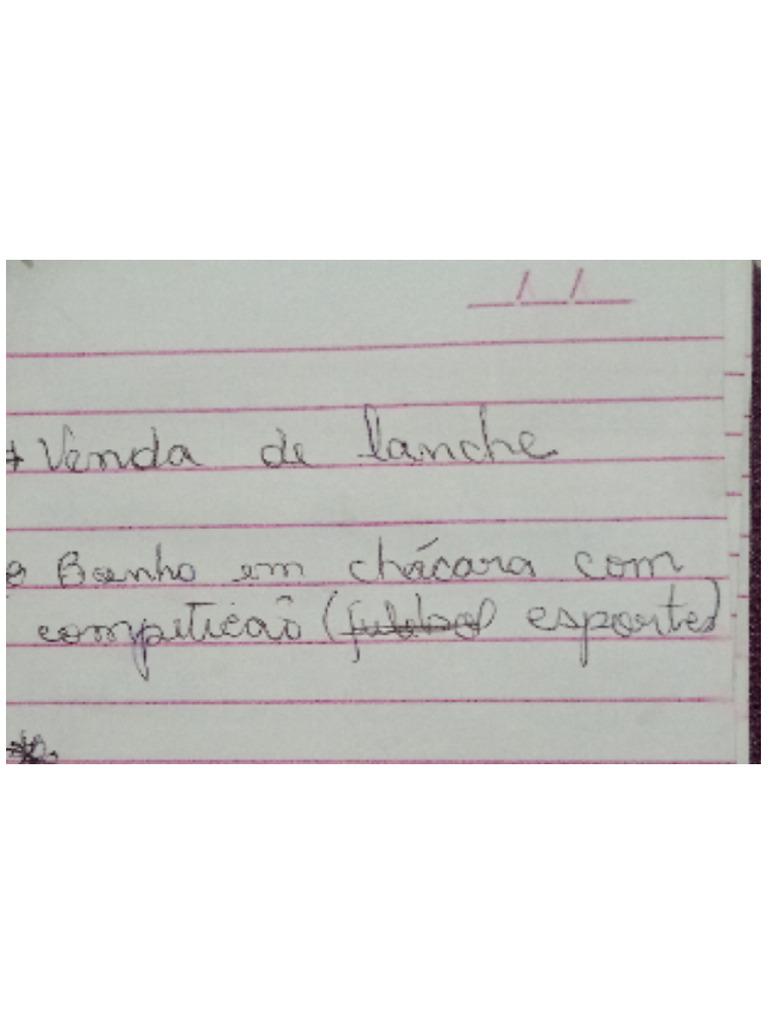 Venda de lanche
Banho em chácara com
competicão (futebol esporte)